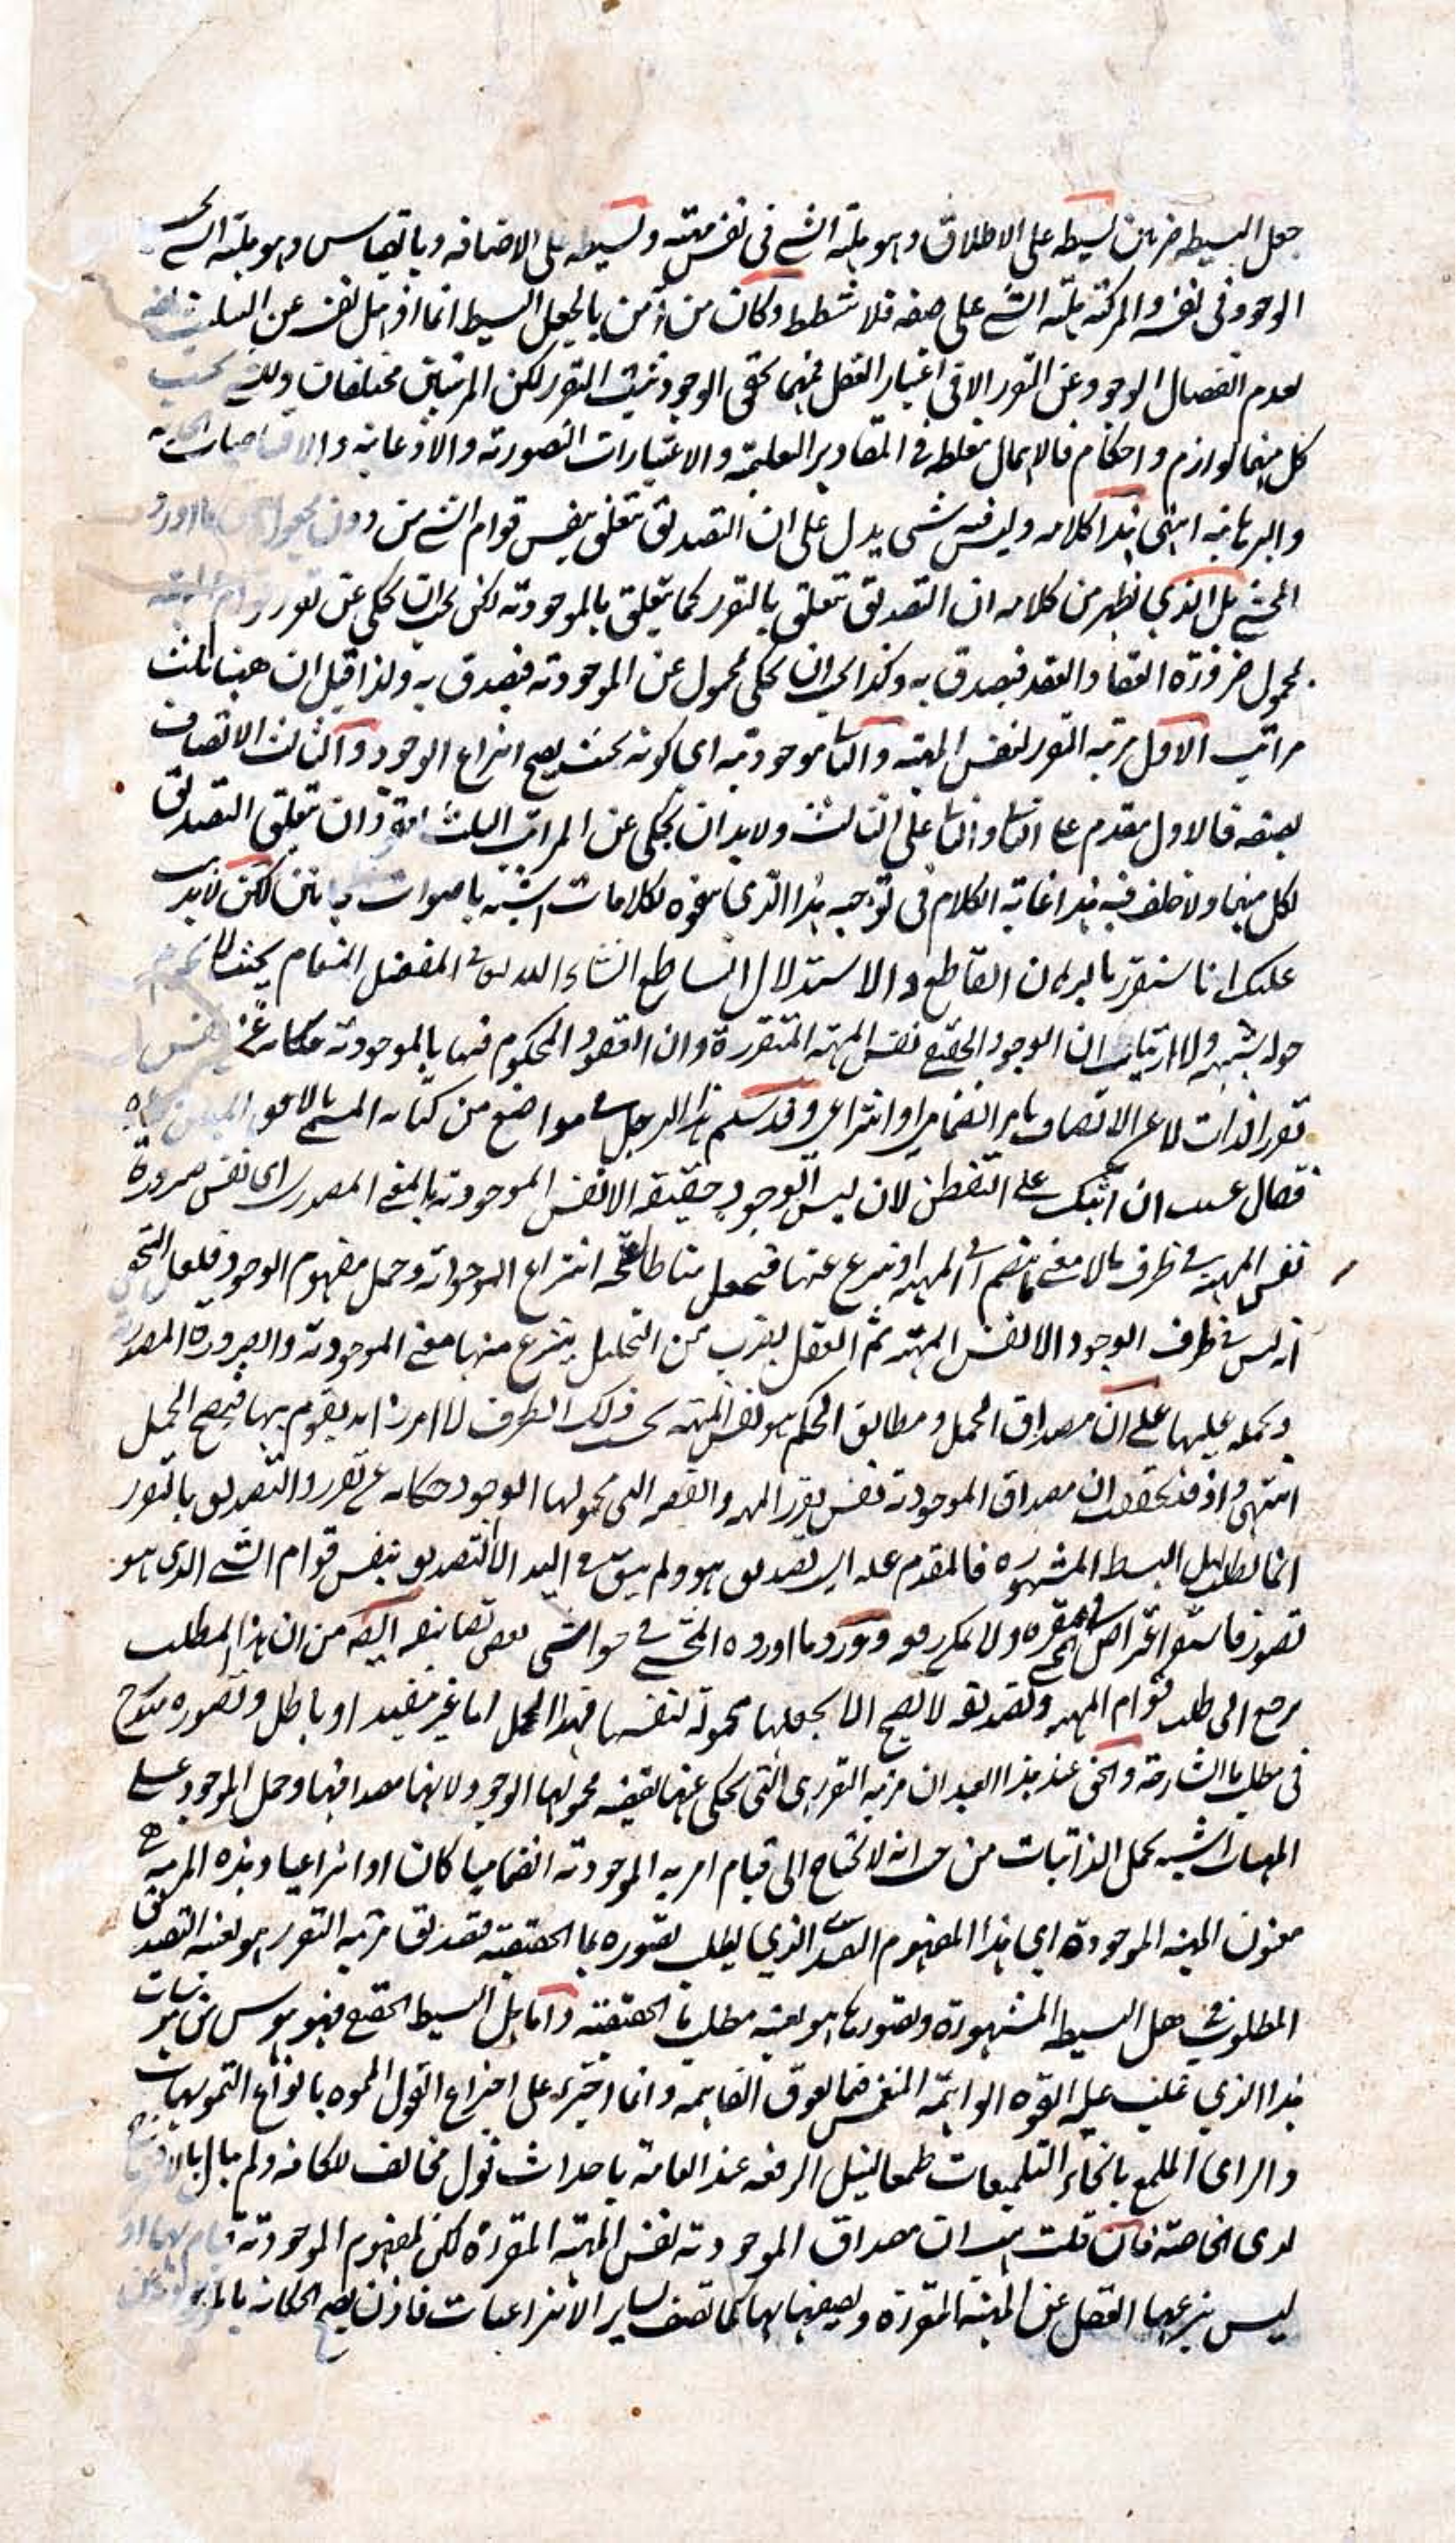 جعل البسيطه ضربين بسيطه على الاطلاق وهو هلية الشئ فى نفس مهيته وبسيطه على الاضافه وبالقياس وهو هلية الشئ
الوجود فى نفسه والمركبه هلية الشئ على صفه فلا شطط وكان من آمن بالجعل البسيط انما اذهل نفسه عن
لعدم انفصال الوجود عن التقرر الا فى اعتبار العقل فمهما تحقق الوجود ثبت التقرر لكن المرتبتين مختلفتان ولكنه بحسب
كل منهما لوازم واحكام فالاهمال مغلطه فى المقادير العلميه والاعتبارات التصوريه والاذعانيه
والبرهانيه انتهى هذا كلامه وليس فيه شئ يدل على ان التصديق تعلق بنفس قوام الشئ من دون
المحشى بل الذى يظهر من كلامه ان التصديق تعلق بالتقرر كما يتعلق بالموجوديه لكن يجب ان يحكى عن تقرر
لمحمول ضرورة القضا والعقد فيصدق به وكذا يجب ان يحكى لمحمول عن الموجوديه فيصدق به ولذا قيل ان ههنا ثلث
مراتب الاول مرتبه التقرر لنفس المهيه والثانى موجوديه اى كونه بحيث يصح انتزاع الوجود والثالث الاتصاف
بصفه فالاول مقدم على الثانى والثانى على الثالث ولا بد ان يحكى عن المراتب الثلث ان تعلق التصديق
لكل منهما ولا خلف فيه هذا غاية الكلام فى توجيه هذا الذى تفوه لكلامات اشبه باصوات لكن لا يذهب
عليك انا سنقرر بالبرهان القاطع والاستدلال الساطع انشاء الله تعالى فى المفصل المقام بحيث لا يحوم
حوله شبهه ولا ارتياب ان الوجود الحقيقى نفس المهيه المتقررة وان العقود المحكوم فيها بالموجوديه حكايه عن نفس
تقرر الذات لا عن الاتصاف بامر انضمامى او انتزاعى وقد سلم هذا الرجل فى مواضع من كتابه المسمى بالافق المبين
فقال عسيت ان اثبتك على التفطن لان ليس الوجود حقيقه الا نفس الموجوديه بالمعنى المصدرى اى نفس صيرورة
نفس المهيه فى ظرف ما لا معنى ينضم الى المهيه او ينتزع عنها فيجعل مناطا لصحه انتزاع الموجوديه وحمل مفهوم الوجود فلعل التحقق
انه ليس فى ظرف الوجود الا نفس المهيه ثم العقل بضرب من التحليل ينتزع منها معنى الموجوديه والصيرورة المصدريه
ويحمله عليها على ان مصداق الحمل ومطابق الحكم هو نفس المهيه بحسب ذلك الظرف لا امر زائد يقوم بها فيصح الحمل
انتهى واذ قد تحققت ان مصداق الموجوديه نفس تقرر المهيه والقضيه التى محمولها الوجود حكايه عن تقرر والتصديق بالتقرر
انما يطلب بهل البسيط المشهوره فالمقدم عليه اى تصديق هو ولم يبق فى اليد الا التصديق بنفس قوام الشئ الذى هو
تصور فاستقر اعتراض المحشى فى مقره ولا يمكن دفعه وورد ما اورده المحشى فى حواشى بعض تصانيفه اليه من ان هذا المطلب
يرجع الى طلب قوام المهيه وتصديقه لا يصح الا بجعلها محمولة لنفسها فهذا الحمل اما غير مفيد او باطل وتصوره مندرج
فى مطلب ما الشارحه والحق عند هذا العبد ان مرتبه التقرر هى التى يحكى عنها بقضيه محمولها الوجود ولانها مصداقها وحمل الموجود على
المهيات اشبه بحمل الذاتيات من حيث انه لا يحتاج الى قيام امر به الموجوديه انضماميا كان او انتزاعيا وهذه المرتبه هى
معنون المهيه الموجودة اى هذا المفهوم التقييدى الذى يطلب تصوره بما الحقيقيه فتصديق مرتبه التقرر هو بعينه التصديق
المطلوب فى هل البسيط المشهورة وتصورها هو بعينه مطلب ما الحقيقيه واما هل البسيط الحقيقى فهو هوس من هوسات
هذا الذى غلبت عليه القوه الواهمه المنغمس فيما يعوق الفاهمه وانما اجترء على اختراع القول المموه بانواع التمويهات
والراى الملمع بانحاء التلميعات طمعا لنيل الرفعه عند العامه باحداث قول مخالف للكافه ولم يبال بالافتضاح
لدى الخاصه فان قلت هب ان مصداق الموجوديه نفس المهيه المتقررة لكن لمفهوم الموجوديه قيام بها اذ
ليس ينتزعها العقل عن المهيه المتقررة ويصفها بها كما تتصف بساير الانتزاعيات فاذن يصح الحكايه